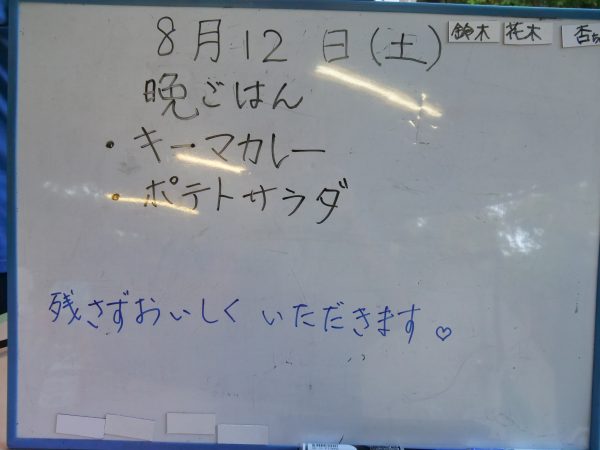 8月12日(土)
鈴木 花木 杏
晩ごはん
・キーマカレー
・ポテトサラダ
残さずおいしくいただきます♡